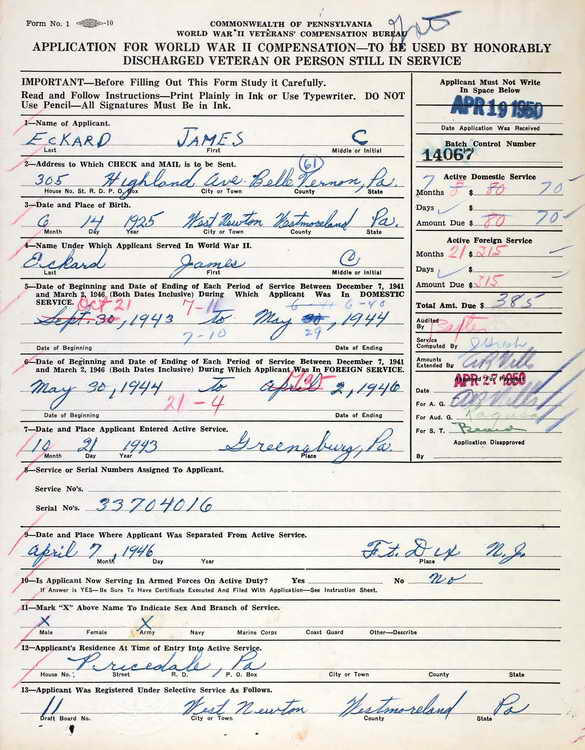 Form No. 1 -10
COMMONWEALTH OF PENNSYLVANIA
WORLD WAR II VETERANS' COMPENSATION BUREAU
APPLICATION FOR WORLD WAR II COMPENSATION—TO BE USED BY HONORABLY
DISCHARGED VETERAN OR PERSON STILL IN SERVICE
IMPORTANT—Before Filling Out This Form Study it Carefully.
Read and Follow Instructions—Print Plainly in Ink or Use Typewriter. DO NOT
Use Pencil—All Signatures Must Be in Ink.
1—Name of Applicant.
ECKARD JAMES C
Last First Middle or Initial
2—Address to Which CHECK and MAIL is to be Sent. (61)
305 Highland Ave. Belle Vernon, Pa.
House No. St. R. D. P. O. Box City or Town County State
3—Date and Place of Birth.
6 14 1925 West Newton Westmoreland Pa.
Month Day Year City or Town County State
4—Name Under Which Applicant Served In World War II.
Eckard James C
Last First Middle or Initial
5—Date of Beginning and Date of Ending of Each Period of Service Between December 7, 1941
and March 2, 1946 (Both Dates Inclusive) During Which Applicant Was In DOMESTIC
SERVICE.
Oct 21 7-11
Sept. 30, 1943 to May 30, 1944
7-10 29
Date of Beginning Date of Ending
6—Date of Beginning and Date of Ending of Each Period of Service Between December 7, 1941
and March 2, 1946 (Both Dates Inclusive) During Which Applicant Was In FOREIGN SERVICE.
May 30, 1944 to April 2, 1946
21-4
Date of Beginning Date of Ending
7—Date and Place Applicant Entered Active Service.
10 21 1943 Greensburg, Pa.
Month Day Year Place
8—Service or Serial Numbers Assigned To Applicant.
Service No's.
Serial No's. 33704016
9—Date and Place Where Applicant Was Separated From Active Service.
April 7, 1946 Ft. Dix N.J.
Month Day Year Place
10—Is Applicant Now Serving In Armed Forces On Active Duty? Yes No No
If Answer is YES—Be Sure To Have Certificate Executed And Filed With Application—See Instruction Sheet.
11—Mark "X" Above Name To Indicate Sex and Branch of Service.
X X
Male Female Army Navy Marine Corps Coast Guard Other—Describe
12—Applicant's Residence At Time of Entry Into Active Service.
Pricedale, Pa
House No. Street R. D. P. O. Box City or Town County State
13—Applicant Was Registered Under Selective Service As Follows.
11 West Newton Westmoreland Pa
Draft Board No. City or Town County State
Applicant Must Not Write
In Space Below
APR 19 1950
Date Application Was Received
Batch Control Number
14067
Active Domestic Service
7 Months 8 $ 80 70-
Days
Amount Due $ 80 70-
Active Foreign Service
Months 21 $ 315
Days
Amount Due $ 315
Total Amt. Due $ 385
Audited By
Service Computed By
Amounts Extended By
APR 27 1950
Date
For A. G.
For Aud. G.
For S. T.
Application Disapproved
By